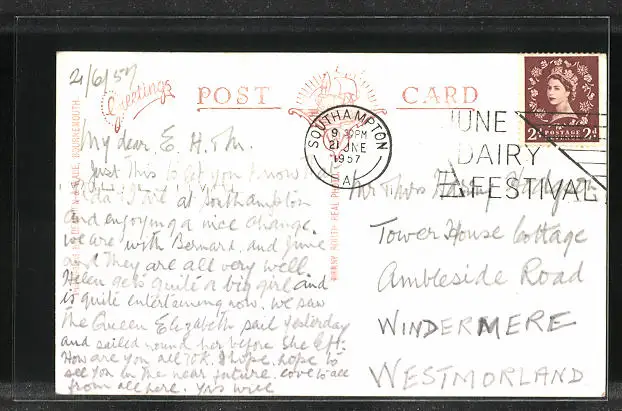 21/6/57
Greetings
POST CARD
SOUTHAMPTON
9 30PM
21 JNE
1957
A
JUNE
DAIRY
FESTIVAL
2d POSTAGE REVENUE 2d
My dear E. H. Th.
Just This to let you know
I are at Southampton
and enjoying a nice change.
we are with Bernard, and June
and They are all very well.
Helen gets quite a big girl and
is quite entertaining now. we saw
The Queen Elizabeth sail yesterday
and sailed round her before she left.
How are you all? O.K. I hope. hope to
see you in the near future. love to all
from all here. Yrs Will
Mr Thos Harry
Tower House Cottage
Ambleside Road
WINDERMERE
WESTMORLAND
BOURNEMOUTH
REAL PHOTO